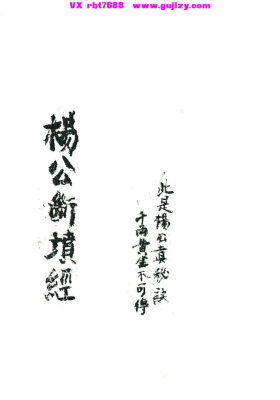 VX rbt7688 www.gujizy.com
此是楊公真秘訣
千両黄金不可傳
楊公斷墳經